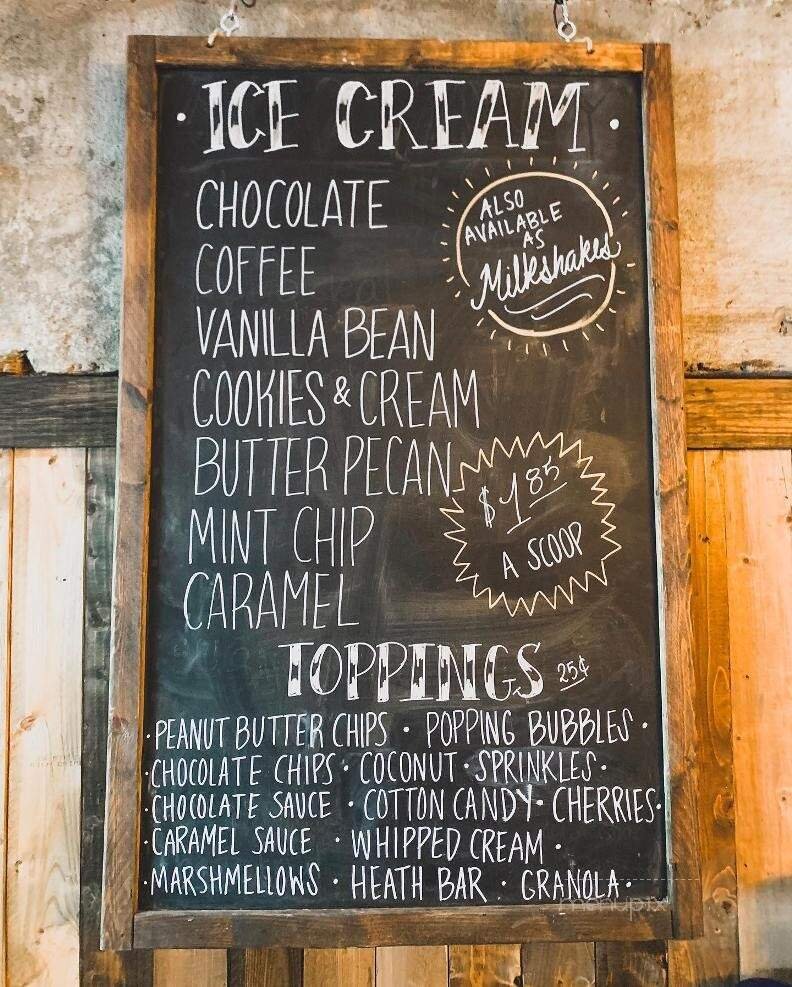 · ICE CREAM ·
CHOCOLATE
ALSO
AVAILABLE
AS
Milkshakes
COFFEE
VANILLA BEAN
COOKIES & CREAM
BUTTER PECAN
$1.85
A SCOOP
MINT CHIP
CARAMEL
TOPPINGS 25¢
· PEANUT BUTTER CHIPS · POPPING BUBBLES ·
· CHOCOLATE CHIPS · COCONUT · SPRINKLES ·
· CHOCOLATE SAUCE · COTTON CANDY · CHERRIES ·
· CARAMEL SAUCE · WHIPPED CREAM ·
· MARSHMELLOWS · HEATH BAR · GRANOLA ·
menupix